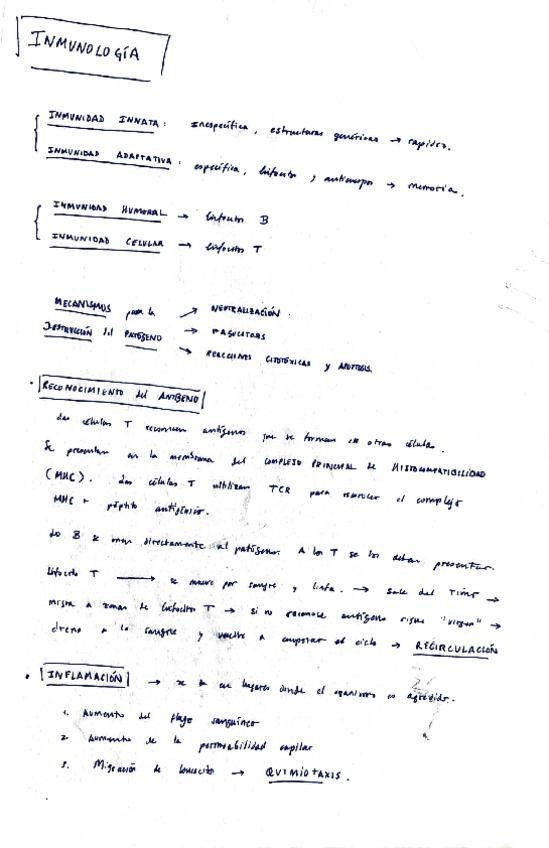 INMUNOLOGÍA
INMUNIDAD INNATA: Inespecífica, estructuras genéricas → rapidez.
INMUNIDAD ADAPTATIVA: específica, linfocitos y anticuerpos → memoria.
INMUNIDAD HUMORAL → linfocitos B
INMUNIDAD CELULAR → linfocitos T
MECANISMOS para la → NEUTRALIZACIÓN.
DESTRUCCIÓN del PATÓGENO → FAGOCITOSIS
→ REACCIONES CITOTÓXICAS y APOPTOSIS.
• RECONOCIMIENTO del ANTÍGENO
Las células T reconocen antígenos que se forman en otras células.
Se presentan en la membrana del COMPLEJO PRINCIPAL de HISTOCOMPATIBILIDAD
(MHC). Las células T utilizan TCR para reconocer el complejo
MHC + péptido antigénico.
Lo B se unen directamente al patógeno. A los T se los deben presentar.
Linfocito T → se mueve por sangre y linfa. → Sale del Timo →
migra a zonas de linfocitos T → si no reconoce antígeno sigue "virgen" →
drena a la sangre y vuelve a empezar el ciclo → RECIRCULACIÓN
• INFLAMACIÓN → se da en lugares donde el organismo es agredido.
1. Aumento del flujo sanguíneo
2. Aumento de la permeabilidad capilar
3. Migración de leucocito → QUIMIOTAXIS.